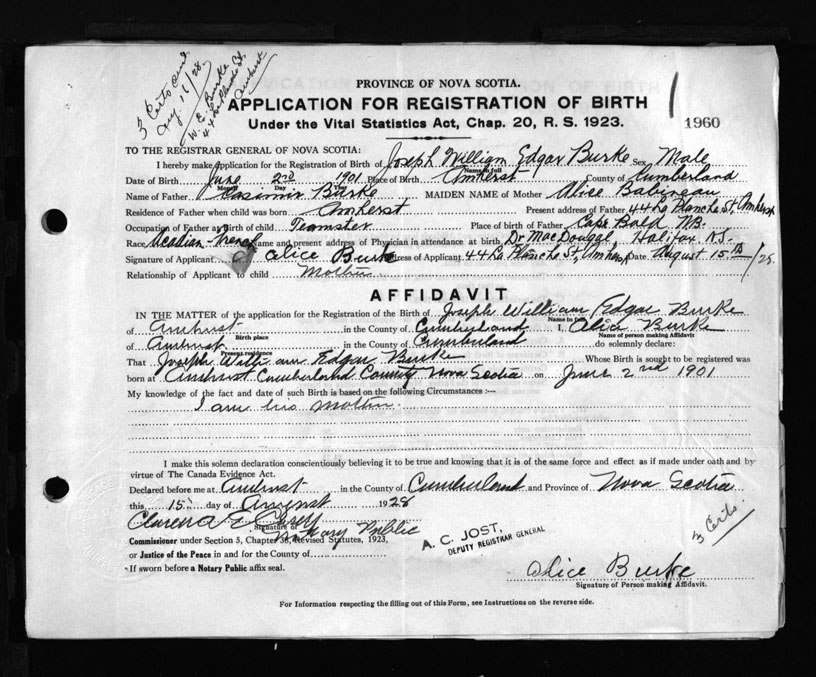 3 Certs sent
Aug. 16/28
W. E. Burke
44 La Planche St.
Amherst
PROVINCE OF NOVA SCOTIA.
APPLICATION FOR REGISTRATION OF BIRTH
1960
Under the Vital Statistics Act, Chap. 20, R. S. 1923.
TO THE REGISTRAR GENERAL OF NOVA SCOTIA:
I hereby make application for the Registration of Birth of Joseph William Edgar Burke Sex Male
Name in full
Date of Birth June 2nd 1901 Place of Birth Amherst County of Cumberland
Month Day Year
Name of Father Casimir Burke MAIDEN NAME of Mother Alice Babineau
Residence of Father when child was born Amherst Present address of Father 44 La Planche St, Amherst
Occupation of Father at Birth of child Teamster Place of birth of Father Cape Bald N.B.
Race Acadian-French Name and present address of Physician in attendance at birth Dr MacDougal, Halifax N.S.
Signature of Applicant Alice Burke Address of Applicant 44 La Planche St, Amherst Date August 15th/28.
Relationship of Applicant to child Mother
AFFIDAVIT
IN THE MATTER of the application for Registration of the Birth of Joseph William Edgar Burke
Name in full
of Amherst in the County of Cumberland I, Alice Burke
Birth place Name of person making Affidavit
of Amherst in the County of Cumberland do solemnly declare:
Present residence
That Joseph William Edgar Burke Whose Birth is sought to be registered was
born at Amherst Cumberland County Nova Scotia on June 2nd 1901
My knowledge of the fact and date of such Birth is based on the following Circumstances :—
I am his Mother.
I make this solemn declaration conscientiously believing it to be true and knowing that it is of the same force and effect as if made under oath and by
virtue of The Canada Evidence Act.
Declared before me at Amherst in the County of Cumberland and Province of Nova Scotia
this 15 day of August 1928
Signature of
Notary Public
Commissioner under Section 5, Chapter 38, Revised Statutes, 1923,
or Justice of the Peace in and for the County of
If sworn before a Notary Public affix seal.
A. C. JOST,
DEPUTY REGISTRAR GENERAL
3 Certs.
Alice Burke
Signature of Person making Affidavit.
For Information respecting the filling out of this Form, see Instructions on the reverse side.